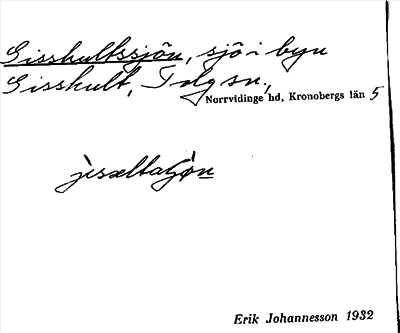 Gisshultssjön, sjö i byn
Gisshult, Tolg sn.,
Norrvidinge hd, Kronobergs län 5
Erik Johannesson 1932